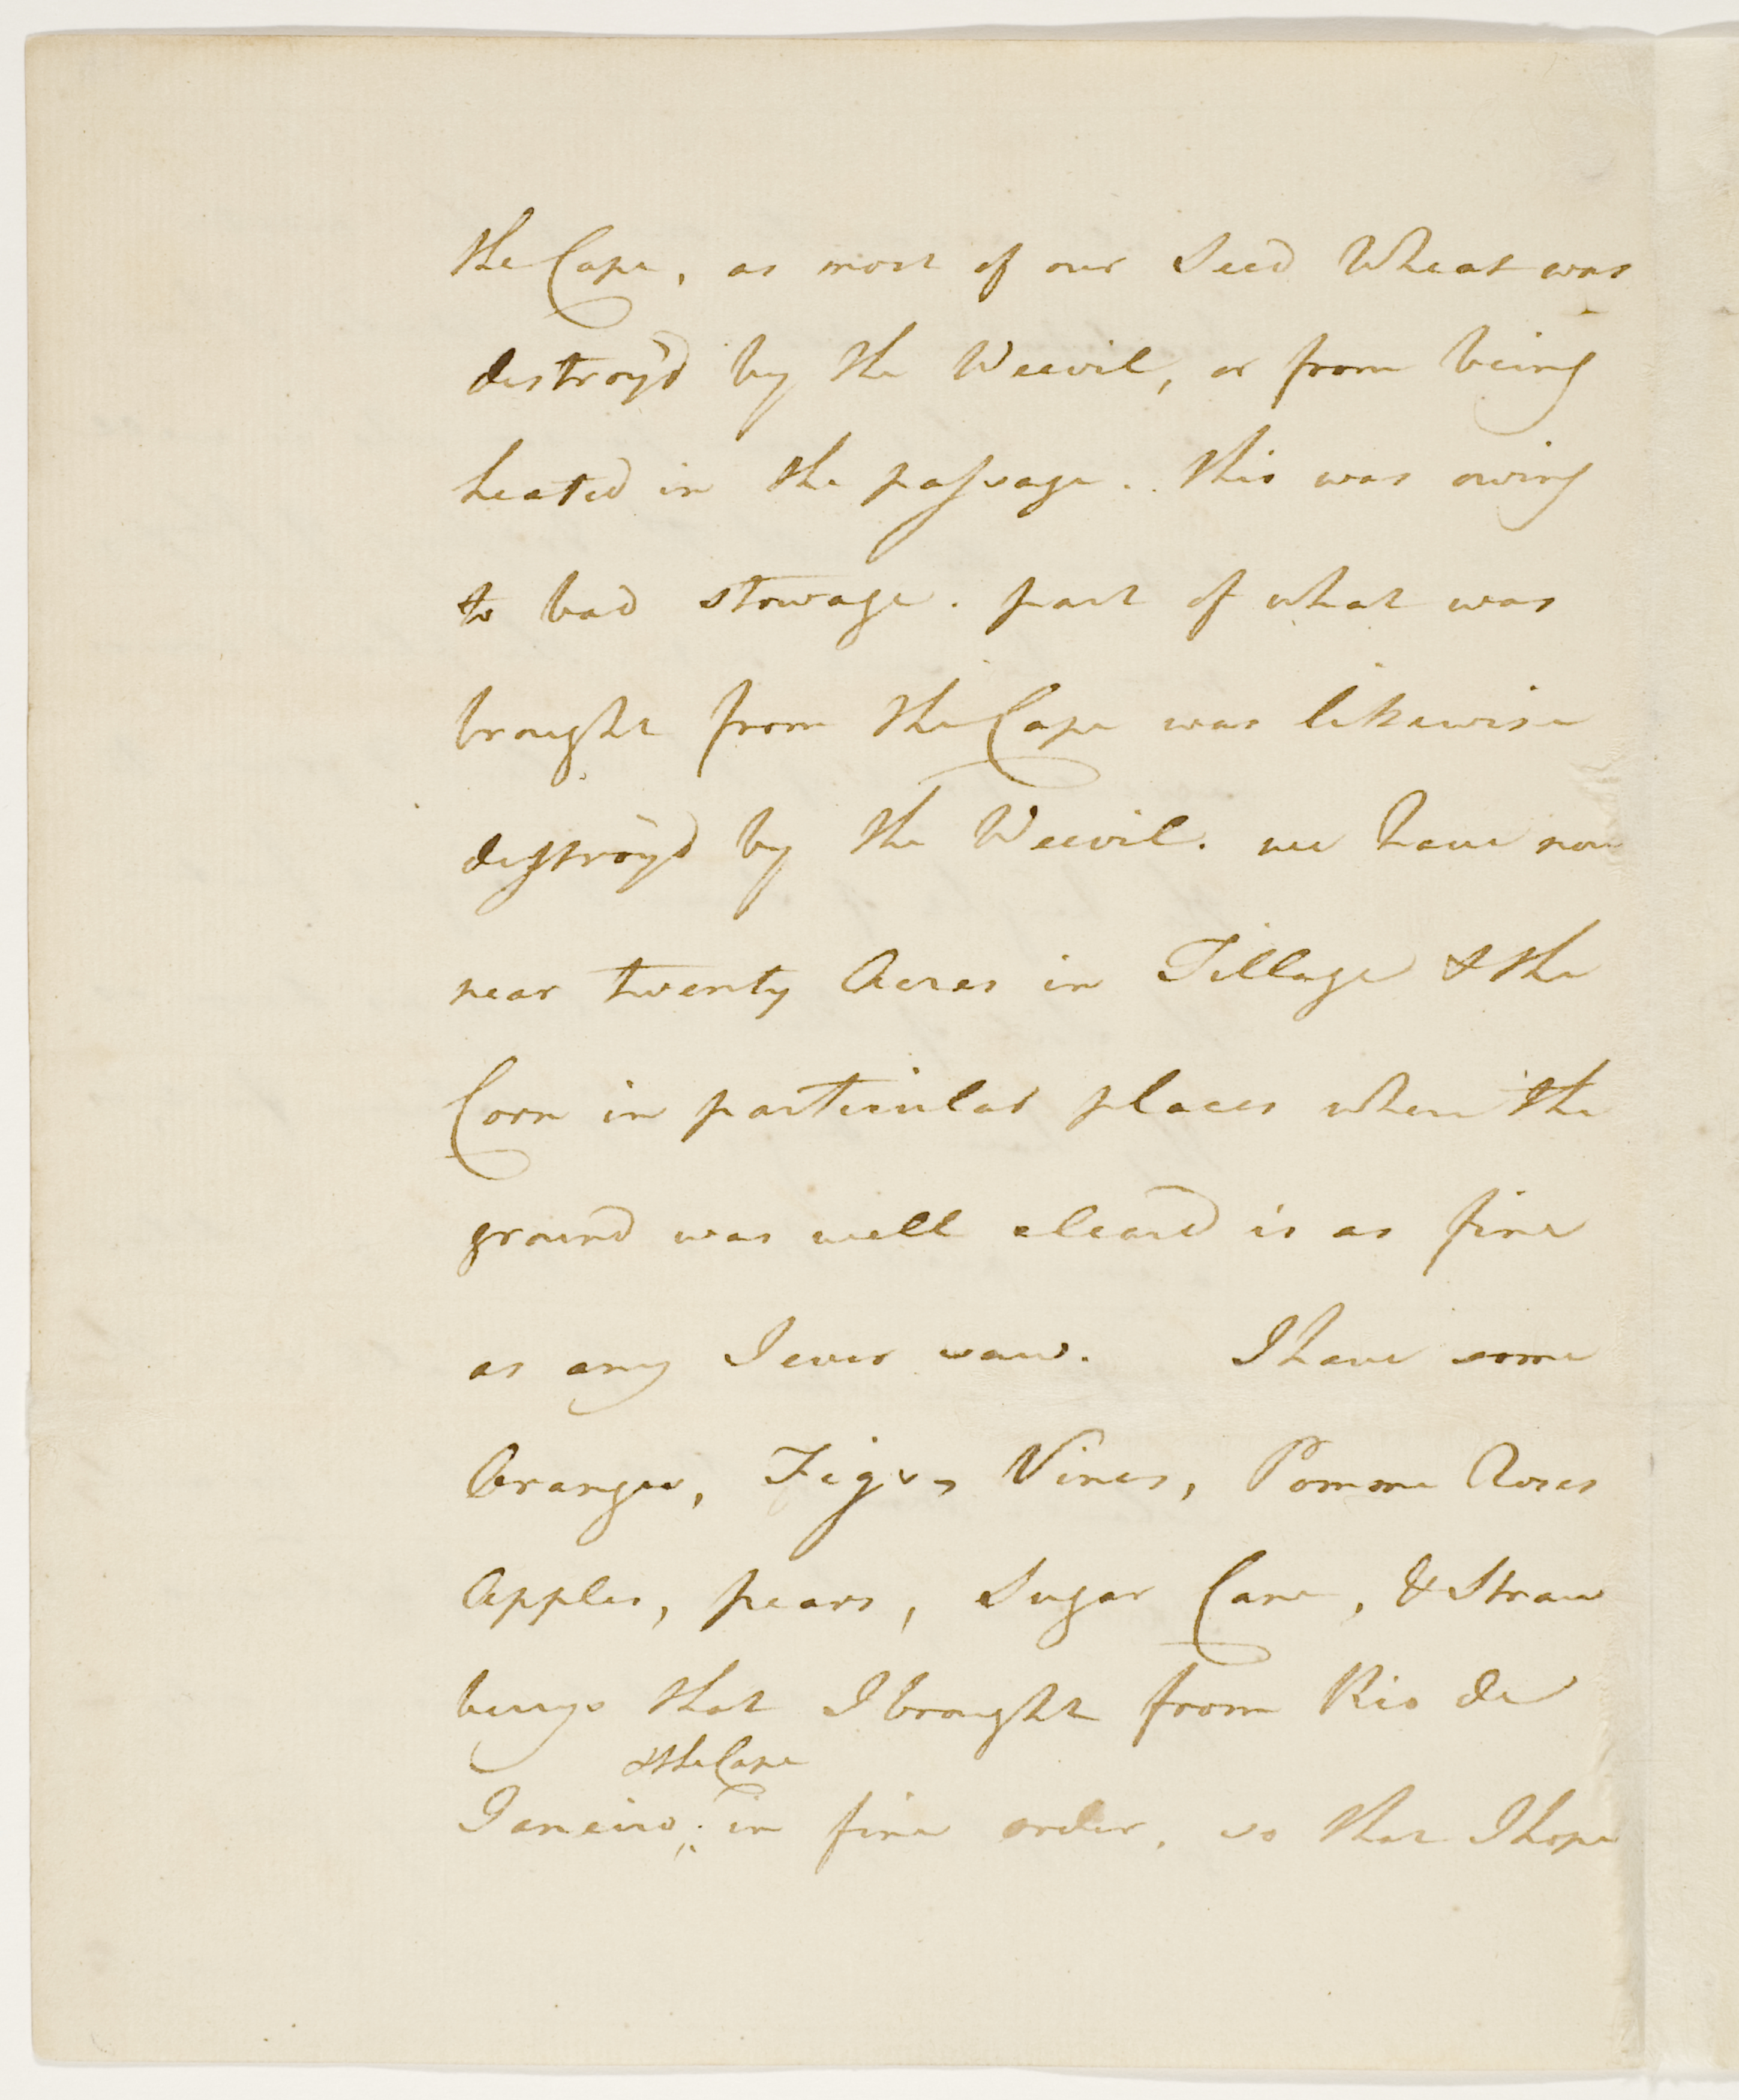 the Cape, as most of our Seed Wheat was
destroy'd by the Weevil, or from being
heated in the passage. this was owing
to bad stowage. part of what was
brought from the Cape was likewise
destroy'd by the Weevil. we have now
near twenty Acres in Tillage & the
Corn in particular places where the
ground was well cleard is as fine
as any I ever saw. I have some
Oranges, Figs, Vines, Pomme Roses
Apples, pears, Sugar Cane, & Straw
berrys that I brought from Rio de
& the Cape
Janeiro, in fine order, so that I hope